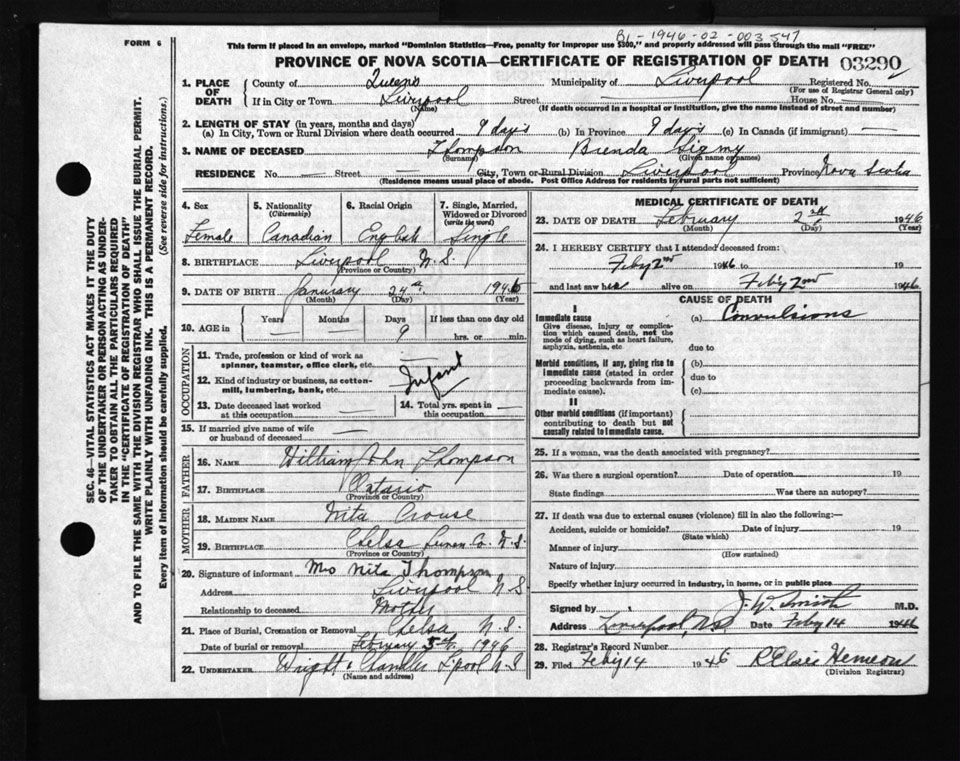 B1-1946-02-003547
FORM 6
This form if placed in an envelope, marked "Dominion Statistics—Free, penalty for improper use $300," and properly addressed will pass through the mail "FREE"
PROVINCE OF NOVA SCOTIA—CERTIFICATE OF REGISTRATION OF DEATH 03290
1. PLACE OF DEATH
County of Queens Municipality of Liverpool Registered No.
(For use of Registrar General only)
If in City or Town Liverpool Street House No.
(Name) (If death occurred in a hospital or institution, give the name instead of street and number)
2. LENGTH OF STAY (in years, months and days)
(a) In City, Town or Rural Division where death occurred 9 days (b) In Province 9 days (c) In Canada (if immigrant) —
3. NAME OF DECEASED Thompson Brenda
(Surname) (Given name or names)
RESIDENCE No. — Street — City, Town or Rural Division Liverpool Province Nova Scotia
(Residence means usual place of abode. Post Office Address for residents in rural parts not sufficient)
4. Sex Female
5. Nationality (Citizenship) Canadian
6. Racial Origin English
7. Single, Married, Widowed or Divorced (write the word) Single
8. BIRTHPLACE Liverpool N.S.
(Province or Country)
9. DATE OF BIRTH January 24th 1946
(Month) (Day) (Year)
10. AGE in Years — Months — Days 9 If less than one day old hrs. or min.
OCCUPATION
11. Trade, profession or kind of work as spinner, teamster, office clerk, etc. —
12. Kind of industry or business, as cotton-mill, lumbering, bank, etc. Infant
13. Date deceased last worked at this occupation —
14. Total yrs. spent in this occupation —
15. If married give name of wife or husband of deceased —
FATHER
16. NAME William John Thompson
17. BIRTHPLACE Ontario
(Province or Country)
MOTHER
18. MAIDEN NAME Nita Crouse
19. BIRTHPLACE Chelsa Lunen Co. N.S.
(Province or Country)
20. Signature of informant Mrs Nita Thompson
Address Liverpool N.S.
Relationship to deceased Mother
21. Place of Burial, Cremation or Removal Chelsa N.S.
Date of burial or removal February 5th, 1946
22. UNDERTAKER Wright & Chandler L'pool N.S
(Name and address)
MEDICAL CERTIFICATE OF DEATH
23. DATE OF DEATH February 2nd 1946
(Month) (Day) (Year)
24. I HEREBY CERTIFY that I attended deceased from:
Feby 2nd 1946 to 19
and last saw her alive on Feby 2nd 1946
CAUSE OF DEATH
I
Immediate cause
Give disease, injury or complication which caused death, not the mode of dying, such as heart failure, asphyxia, asthenia, etc.
(a) Convulsions
due to
Morbid conditions, if any, giving rise to immediate cause (stated in order proceeding backwards from immediate cause).
(b)
due to
(c)
II
Other morbid conditions (if important) contributing to death but not causally related to immediate cause.
25. If a woman, was the death associated with pregnancy?
26. Was there a surgical operation? Date of operation 19
State findings Was there an autopsy?
27. If death was due to external causes (violence) fill in also the following:—
Accident, suicide or homicide? Date of injury 19
(State which)
Manner of injury
(How sustained)
Nature of injury
Specify whether injury occurred in industry, in home, or in public place
Signed by J. W. Smith M.D.
Address Liverpool, N.S. Date Feby 14 1946
28. Registrar's Record Number
29. Filed Feby 14 1946 R Elsie Hemeon
(Division Registrar)
SEC. 46—VITAL STATISTICS ACT MAKES IT THE DUTY
OF THE UNDERTAKER OR PERSON ACTING AS UNDER-
TAKER TO OBTAIN ALL THE PARTICULARS REQUIRED
IN THE "CERTIFICATE OF REGISTRATION OF DEATH"
AND TO FILE THE SAME WITH THE DIVISION REGISTRAR WHO SHALL ISSUE THE BURIAL PERMIT.
WRITE PLAINLY WITH UNFADING INK. THIS IS A PERMANENT RECORD.
Every item of information should be carefully supplied. (See reverse side for instructions.)